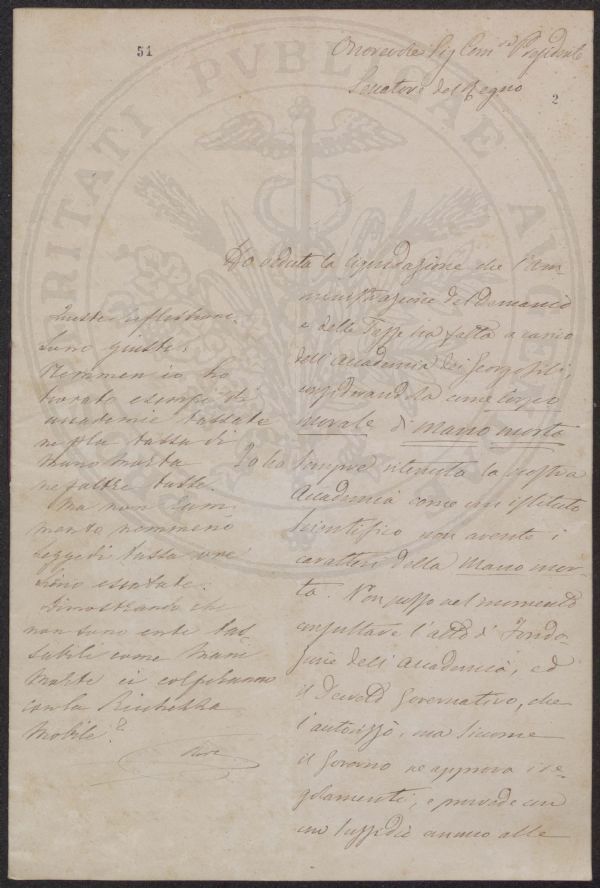 51
Onorevole Sig Com.re Presidente
Senatore del Regno
2
Ho veduta la liquidazione che l'Am
ministrazione del Demanio
e delle Tasse ha fatta a carico
dell'Accademia dei Georgofili,
considerandola come Corpo
morale di mano morta
Io ho sempre ritenuta la nostra
Accademia come un istituto
scientifico non avente i
caratteri della Mano mor
ta. Non posso nel momento
consultare l'atto di Fonda
zione dell'Accademia, ed
il Decreto Governativo, che
l'autorizzò, ma siccome
il Governo ne approva i re
golamenti, e provvede con
un sussidio annuo alle
Queste riflessioni
sono giuste.
Nemmen io ho
trovato esempi di
accademie tassate
nè per la tassa di
mano morta
nè altre tasse.
Ma non ram
mento nemmeno
legge di tassa ove
sieno esentate.
Dimostrando che
non sono enti tas
sabili come Mani
Morte ci colpiranno
con la Ricchezza
Mobile?